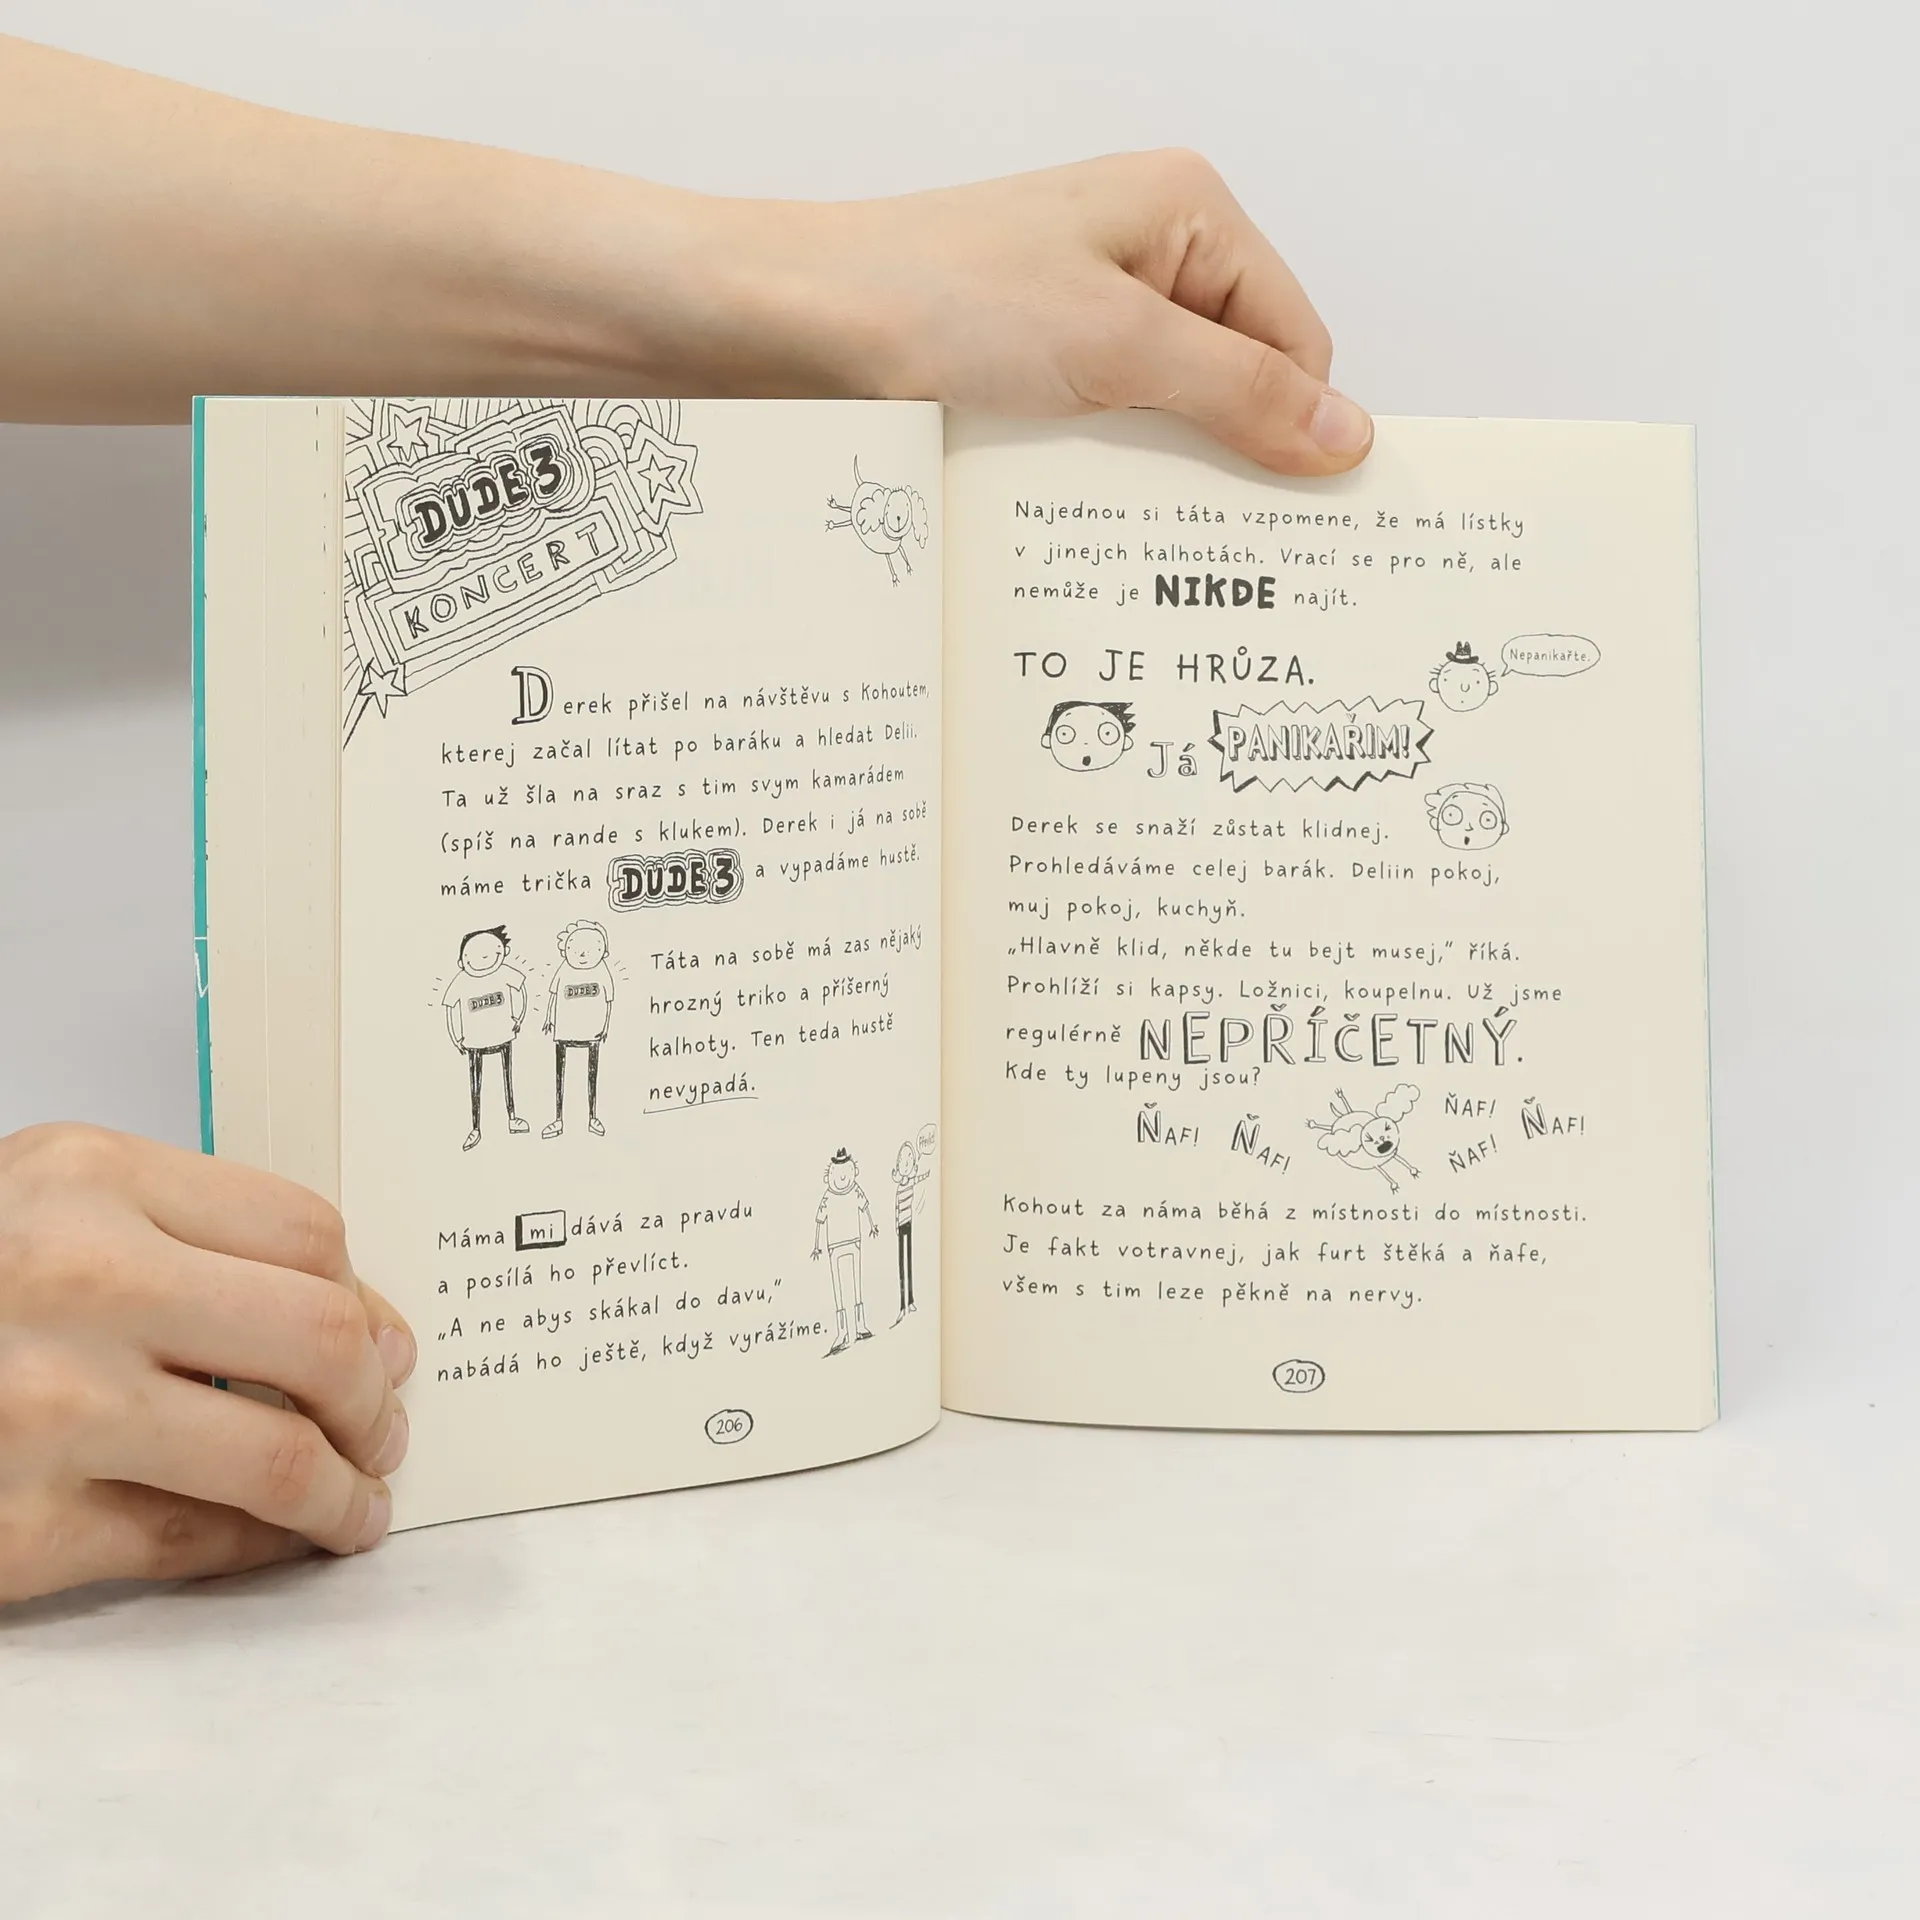 DUDE 3
KONCERT
Derek přišel na návštěvu s Kohoutem,
kterej začal lítat po baráku a hledat Delii.
Ta už šla na sraz s tim svym kamarádem
(spíš na rande s klukem). Derek i já na sobě
máme trička DUDE 3 a vypadáme hustě.
DUDE3
DUDE3
Táta na sobě má zas nějaký
hrozný triko a příšerný
kalhoty. Ten teda hustě
nevypadá.
Máma mi dává za pravdu
a posílá ho převlíct.
„A ne abys skákal do davu,“
nabádá ho ještě, když vyrážíme.
206
Najednou si táta vzpomene, že má lístky
v jinejch kalhotách. Vrací se pro ně, ale
nemůže je NIKDE najít.
TO JE HRŮZA.
Nepanikařte.
Já PANIKAŘIM!
Derek se snaží zůstat klidnej.
Prohledáváme celej barák. Deliin pokoj,
muj pokoj, kuchyň.
„Hlavně klid, někde tu bejt musej,“ říká.
Prohlíží si kapsy. Ložnici, koupelnu. Už jsme
regulérně NEPŘÍČETNÝ.
Kde ty lupeny jsou?
ŇAF! ŇAF! ŇAF! ŇAF! ŇAF!
Kohout za náma běhá z místnosti do místnosti.
Je fakt votravnej, jak furt štěká a ňafe,
všem s tim leze pěkně na nervy.
207